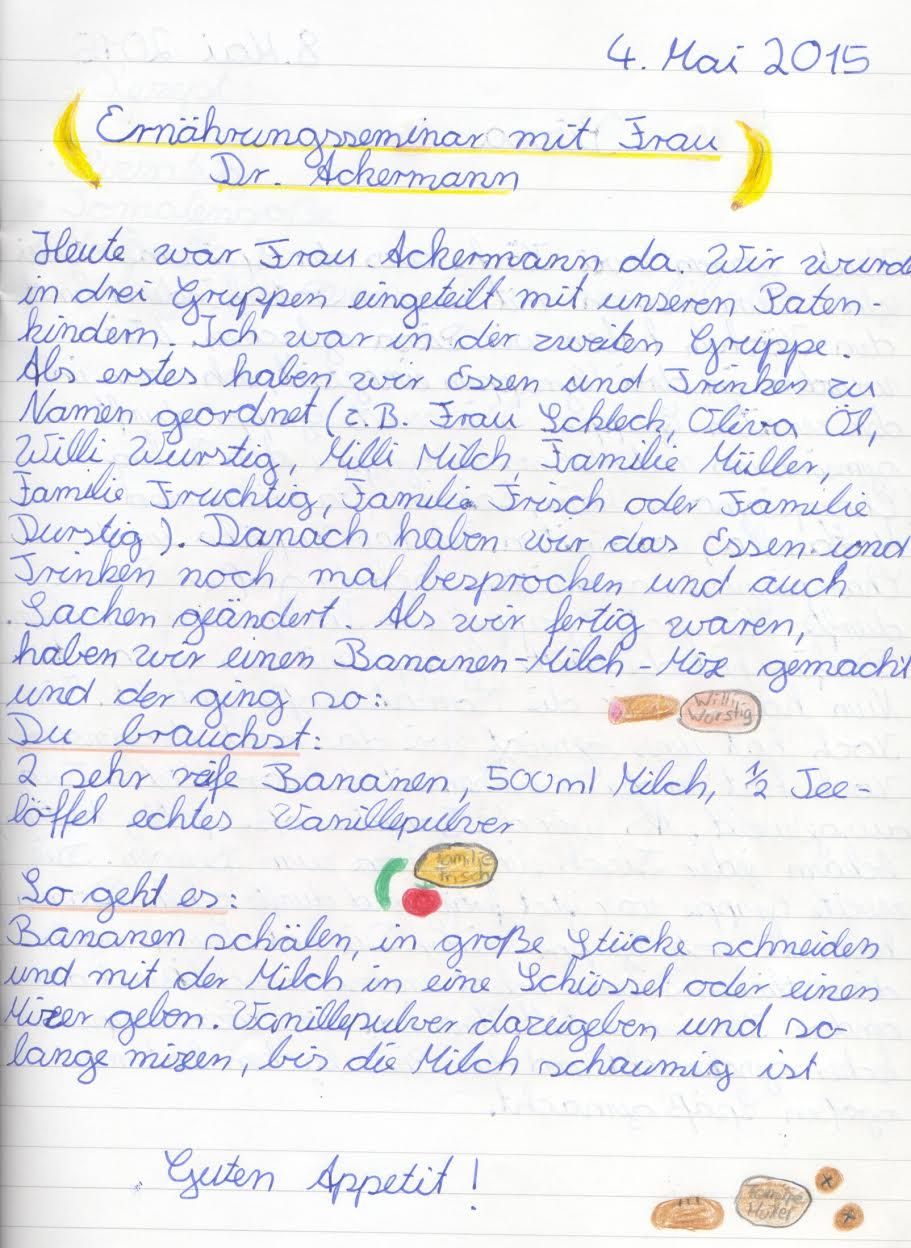 4. Mai 2015
Ernährungsseminar mit Frau
Dr. Ackermann
Heute war Frau Ackermann da. Wir wurde
in drei Gruppen eingeteilt mit unseren Paten-
kindern. Ich war in der zweiten Gruppe.
Als erstes haben wir Essen und Trinken zu
Namen geordnet (z.B. Frau Schleck, Oliva Öl,
Willi Wurstig, Milli Milch, Familie Müller,
Familie Fruchtig, Familie Frisch oder Familie
Durstig). Danach haben wir das Essen und
Trinken noch mal besprochen und auch
Sachen geändert. Als wir fertig waren,
haben wir einen Bananen-Milch-Mix gemacht
und der ging so:
Willi
Wurstig
Du brauchst:
2 sehr reife Bananen, 500ml Milch, 1/2 Tee-
löffel echtes Vanillepulver
Familie
Frisch
So geht es:
Bananen schälen, in große Stücke schneiden
und mit der Milch in eine Schüssel oder einen
Mixer geben. Vanillepulver dazugeben und so-
lange mixen, bis die Milch schaumig ist
Guten Appetit!
Familie
Müller